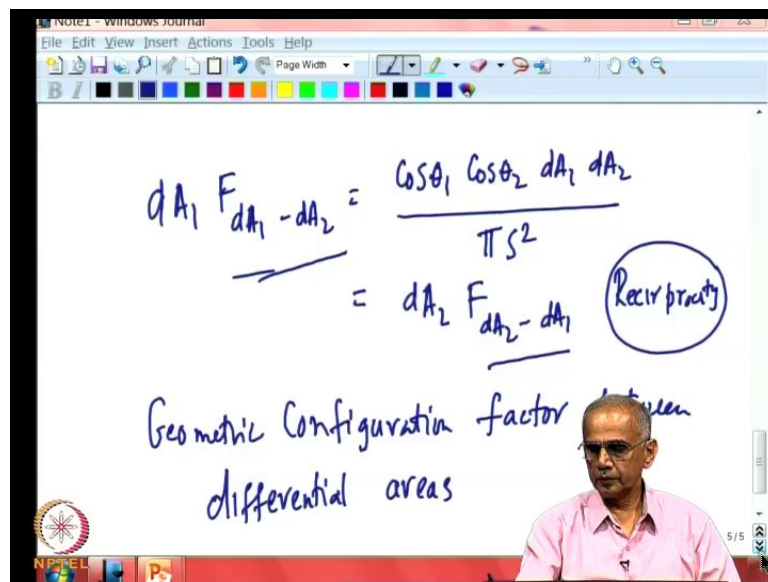 Note1 - Windows Journal
File Edit View Insert Actions Tools Help
Page Width
B I
dA₁ F_{dA₁ - dA₂} = Cosθ₁ Cosθ₂ dA₁ dA₂ / πS²
= dA₂ F_{dA₂ - dA₁} Reciprocity
Geometric Configuration factor
differential areas
5/5
NPTEL